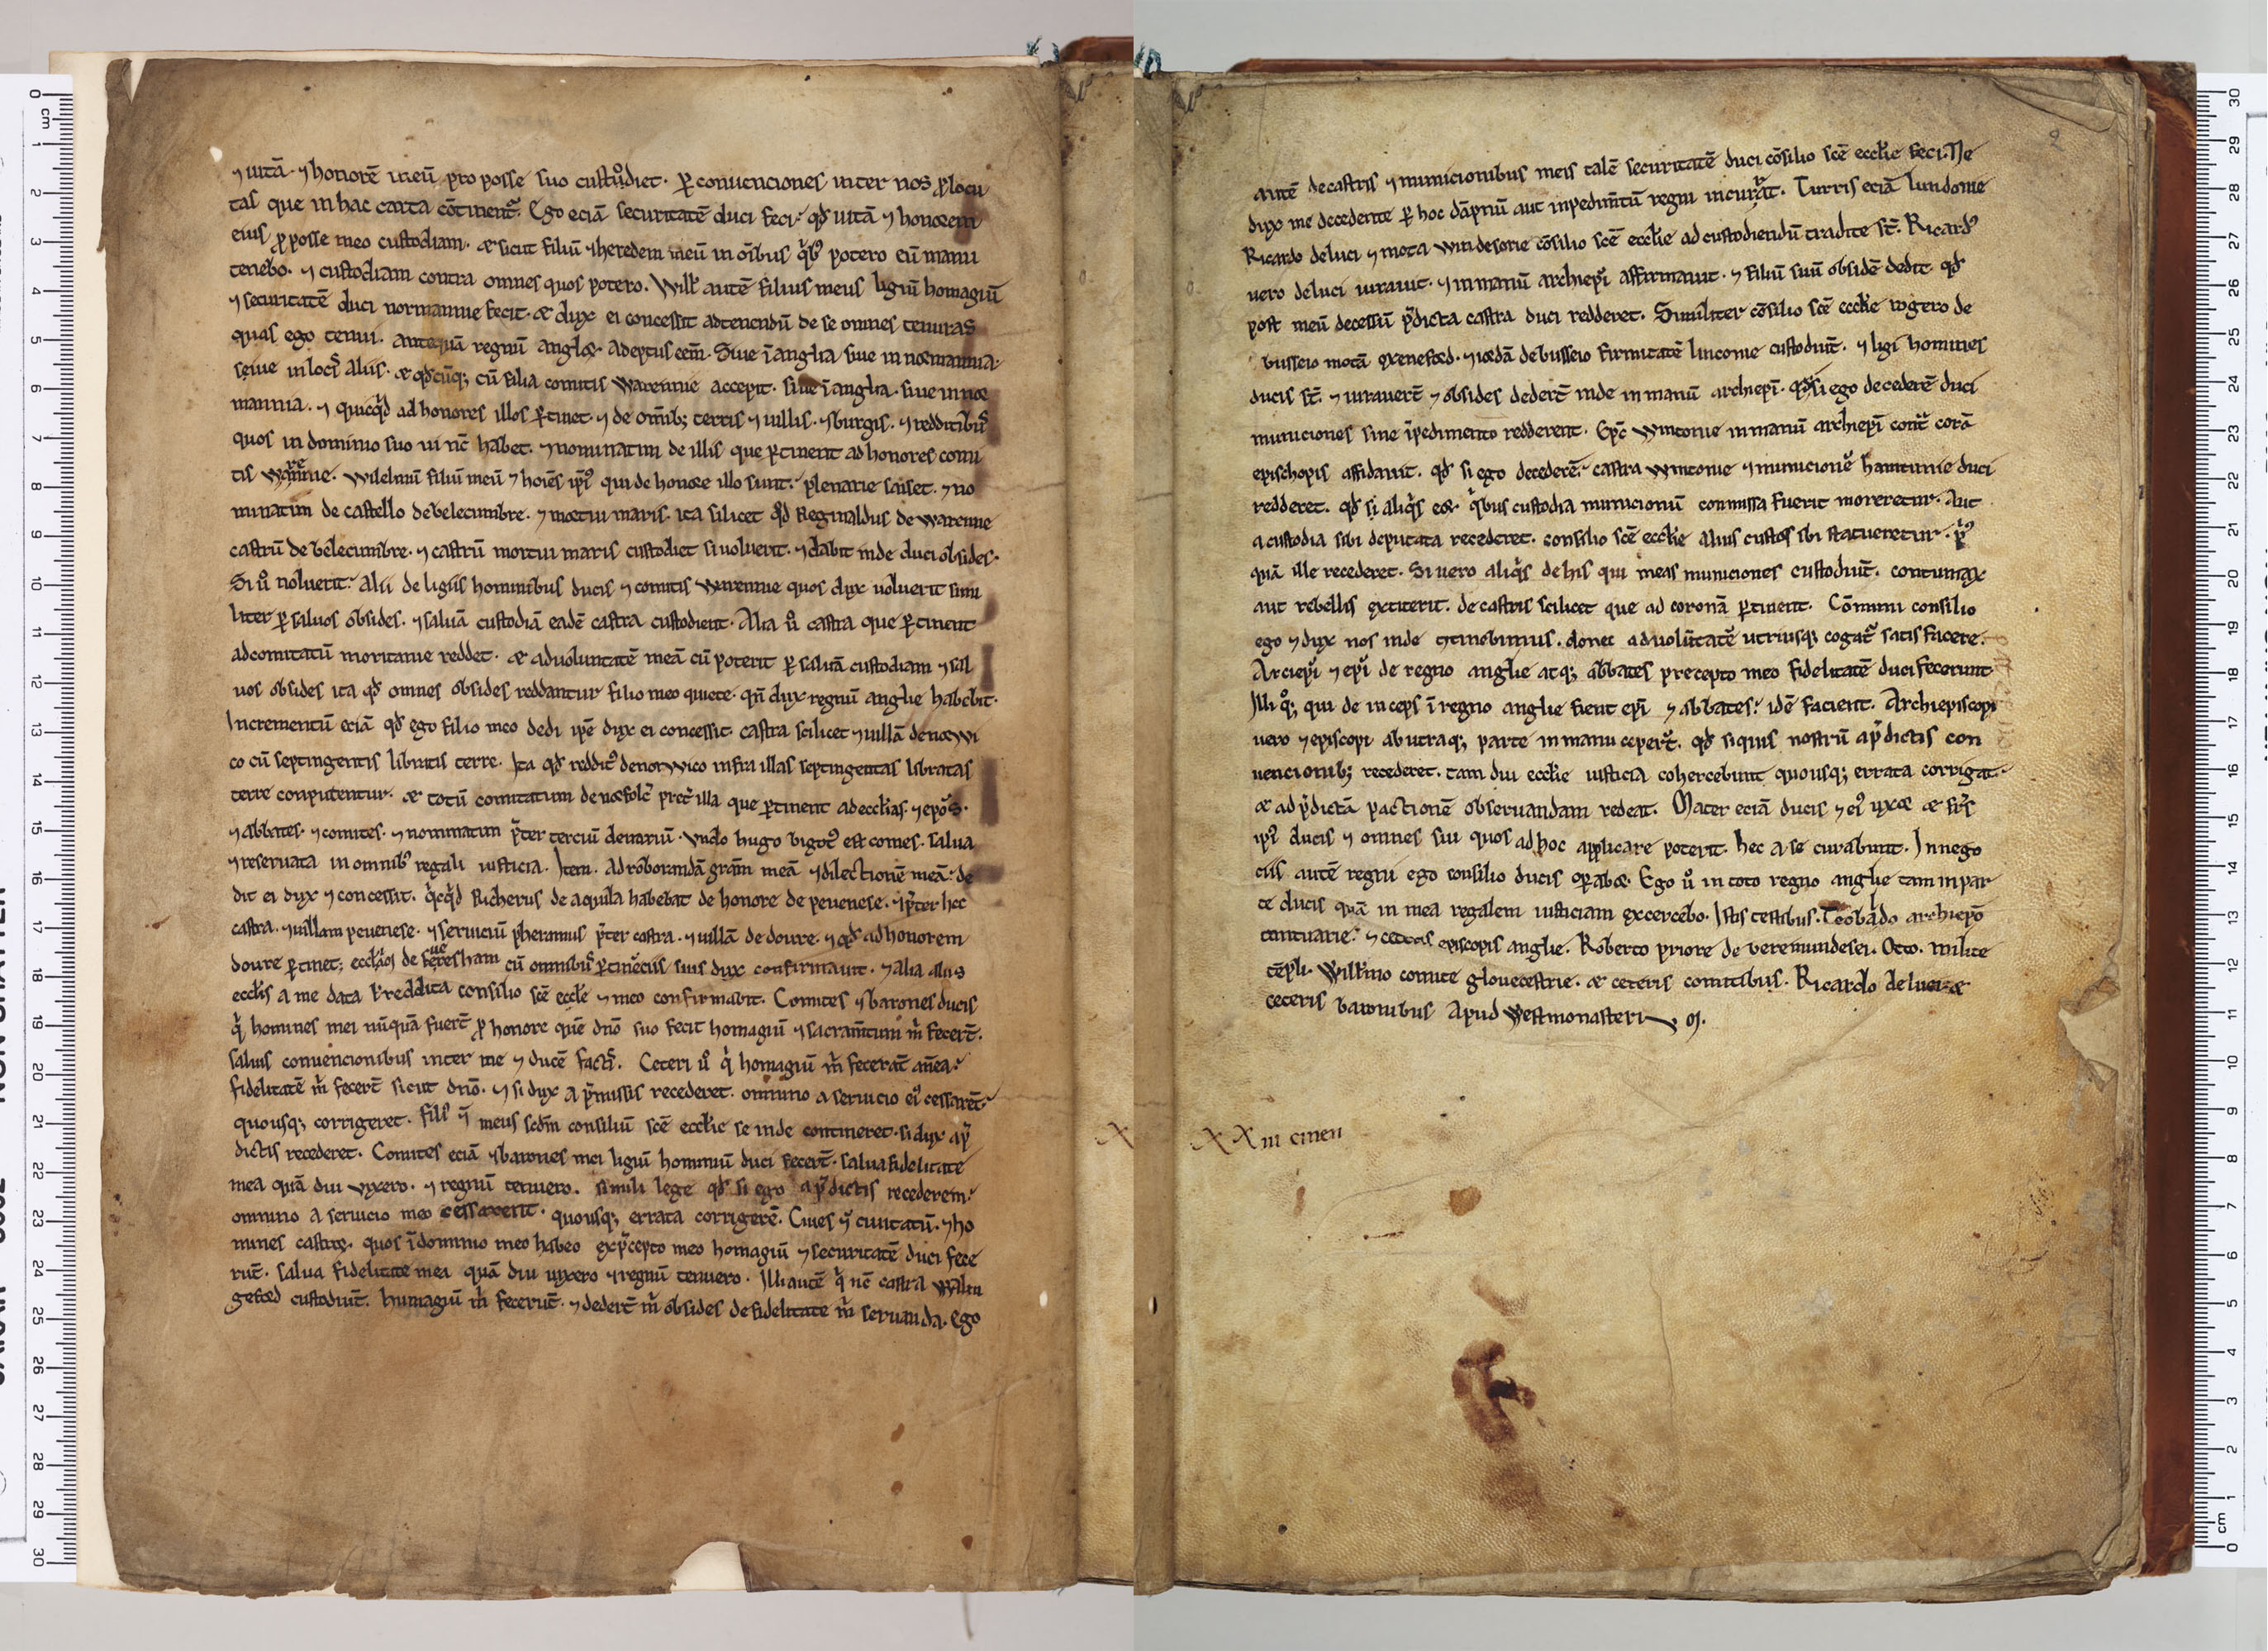 ⁊ uitā ⁊ honorē meū pro posse suo custodiet. ꝑ conuenciones inter nos p̄locu
tas que in hac carta cōtinent᷑. Ego eciā securitatē duci feci: qđ uitā ⁊ honorem
eius ꝓ posse meo custodiam. & sicut filiū ⁊ heredem meū in ōibus q̄bꝰ potero eū manu
tenebo. ⁊ custodiam contra omnes quos potero. Willꝰ autē filius meus ligiū homagiū
⁊ securitatē duci normannie fecit. & dux ei concessit ad tenendū de se omnes tenuras
quas ego tenui. antequā regnū angliæ adeptus eēm. Siue ī anglia siue in normannia.
seiue in locis aliis. & qđcūq; cū filia comitis Warennie accepit. siue ī anglia. siue in nor
mannia. ⁊ quicq̄d ad honores illos ꝑtinet. ⁊ de om̄ib; terris ⁊ uillis. ⁊ burgis. ⁊ redditibꝰ
quos in dominio suo ui nc̄ habet. ⁊ nominatim de illis que ꝑtinent ad honores comi
tis warēnie. Wilelmū filiū meū ⁊ hoīes ip̄iꝰ qui de honore illo sunt: plenarie saiset. ⁊ no
minatim de castello de belecumbre. ⁊ mortui maris. ita silicet qđ Reginaldus de Warenne
castrū de belecumbre. ⁊ castrū mortui maris custodiet si uoluerit. ⁊ dabit inde duci obsides.
Si uͦ noluerit: alii de ligiis hominibus ducis ⁊ comitis Warennie quos dux uoluerit simi
liter ꝑ saluos obsides. ⁊ saluā custodiā eadē castra custodient. Alia uͦ castra que ꝑtinent
ad comitatū moritanie reddet. & ad uoluntatē meā cū poterit ꝑ saluā custodiam ⁊ sal
uos obsides ita qđ omnes obsides reddantur filio meo quiete. qn̄ dux regnū anglie habebit.
Incrementū eciā qđ ego filio meo dedi ip̄e dux ei concessit. castra scilicet ⁊ uillā de norwi
co cū septingentis libratis terre. Ita qđ redditꝰ de norwico infra illas septingentas libratas
terre conputentur. & totū comitatum de norfolc̄ p̄ter illa que ꝑtinent ad ecclias. ⁊ ep̄os.
⁊ abbates. ⁊ comites. ⁊ nominatim p̄ter terciū denariū. vndo hugo bigotꝰ est comes. salua
⁊ reseruata in omnibꝰ regali iusticia. Item. Ad roborandā gram̄ meā ⁊ dilectionē meā: de
dit ei dux ⁊ concessit. q̄cq̄d Richerus de aquila habebat de honore de peuenese. ⁊ p̄ter hec
castra. ⁊ uillam peuenese. ⁊ seruiciū p̄heramus p̄ter castra. ⁊ uillā de doure. ⁊ qđ ad honorem
doure ꝑtinet; eccliaꝫ de feuresham cū omnibus ꝑtinēciis suis dux confirmauit. ⁊ alia aliis
ecclis a me data ł reddita consilio scē eccle ⁊ meo confirmabit. Comites ⁊ barones ducis
q̄ homines mei nūquā fuert̄ ꝓ honore quē dn̄o suo fecit homagiū ⁊ sacramtum m̄ fecert̄.
saluis conuencionibus inter me ⁊ ducē factꝭ. Ceteri uͦ q̄ homagiū m̄ fecerat̄ an̄ea:
fidelitatē m̄ fecert̄ sicut dn̄o. ⁊ si dux a p̄missis recederet. omnino a seruicio eiꝰ cessarēt:
quousq; corrigeret. Filiꝰ uͦ meus scdm̄ consiliū scē ecclie se inde contineret. si dux a p̄
dictis recederet. Comites eciā ⁊ barones mei ligiū hominiū duci fecert̄. salua fidelitate
mea quā diu vixero. ⁊ regnū tenuero. simili lege qđ si ego a p̄dictis recederem:
omnino a seruicio meo cessarent. quousq; errata corrigerē. Ciues uͦ ciuitatū. ⁊ ho
mines castroꝝ. quos ī dominio meo habeo ex p̄cepto meo homagiū ⁊ securitatē duci fece
rūt. salua fidelitate mea quā diu uixero ⁊ regnū tenuero. Illi autē q̄ nc̄ castra walin
geford custodiūt. humagiū m̄ fecerūt. ⁊ dedert̄ m̄ obsides de fidelitate m̄ seruanda. Ego
autē de castris ⁊ municionibus meis talē securitatē duci cōsilio scē ecclie feci. Ne
dux me decedente ꝑ hoc dāpnū aut inpedimtū regni incurrat. Turris eciā lundonie
Ricardo de luci ⁊ mota windesorie cōsilio scē ecclie ad custodiendū tradite st̄. Ricardꝰ
uero de luci iurauit. ⁊ in manū archiep̄i affirmauit. ⁊ filiū suū obsidē dedit qđ
post meū decessū p̄dicta castra duci redderet. Similiter cōsilio scē ecclie rogero de
busseio motā oxeneford. ⁊ iordā de busseio firmitatē lincornie custodiūt. ⁊ ligi homines
ducis st̄. ⁊ iurauert̄ ⁊ obsides dedert̄ inde in manū archiep̄i. qđ si ego decederē duci
municiones sine īpedimento redderent. Ep̄c wintonie in manū archiep̄i cont̄ corā
epischopis affidauit. qđ si ego decederē: castra wintonie ⁊ municionē hamtunie duci
redderet. qđ si aliq̄s eoꝝ q̄bus custodia municionū commissa fuerit moreretur. Aut
a custodia sibi deputata recederet. consilio scē ecclie alius custos ibi statueretur. p̄us
quā ille recederet. Si uero aliq̄s de his qui meas municiones custodiūt. contumax
aut rebellis extiterit. de castris scilicet que ad coronā ꝑtinent. Cōmuni consilio
ego ⁊ dux nos inde ꝯtinebimus. donec ad volūtatē utriusq; cogat᷑ satis facere.
Arciep̄i ⁊ ep̄i de regno anglie atq; abbates precepto meo fidelitatē duci fecerunt
Illi q̄; qui de inceps ī regno anglie fient ep̄i ⁊ abbates: idē facient. Archiepiscopi
uero ⁊ episcopi ab utraq; parte in manu ceperūt. qđ si quis nostrū a p̄dictis con
uencionib; recederet. tam diu ecclie iusticia cohercebunt quousq; errata corrigat.
& ad p̄dictā pactionē obseruandam redeat. Mater eciā ducis ⁊ eiꝰ uxor & frs̄
ip̄iꝰ ducis ⁊ omnes sui quos ad hoc applicare poterit. hec a se curabunt. In nego
ciis autē regni ego consilio ducis oꝑabor. Ego uͦ in toto regno anglie tam in par
te ducis quā in mea regalem iusticiam excercebo. Istis testibus. Teobaldo archiepō
cantuarie. ⁊ ceteris episcopis anglie. Roberto priore de veremundesei. Otto. milite
tēpli. Willmo comite glouecestrie. & ceteris comitibus. Ricardo de luci &
ceteris baronibus Apud Westmonasteri
XXIII cmen
2